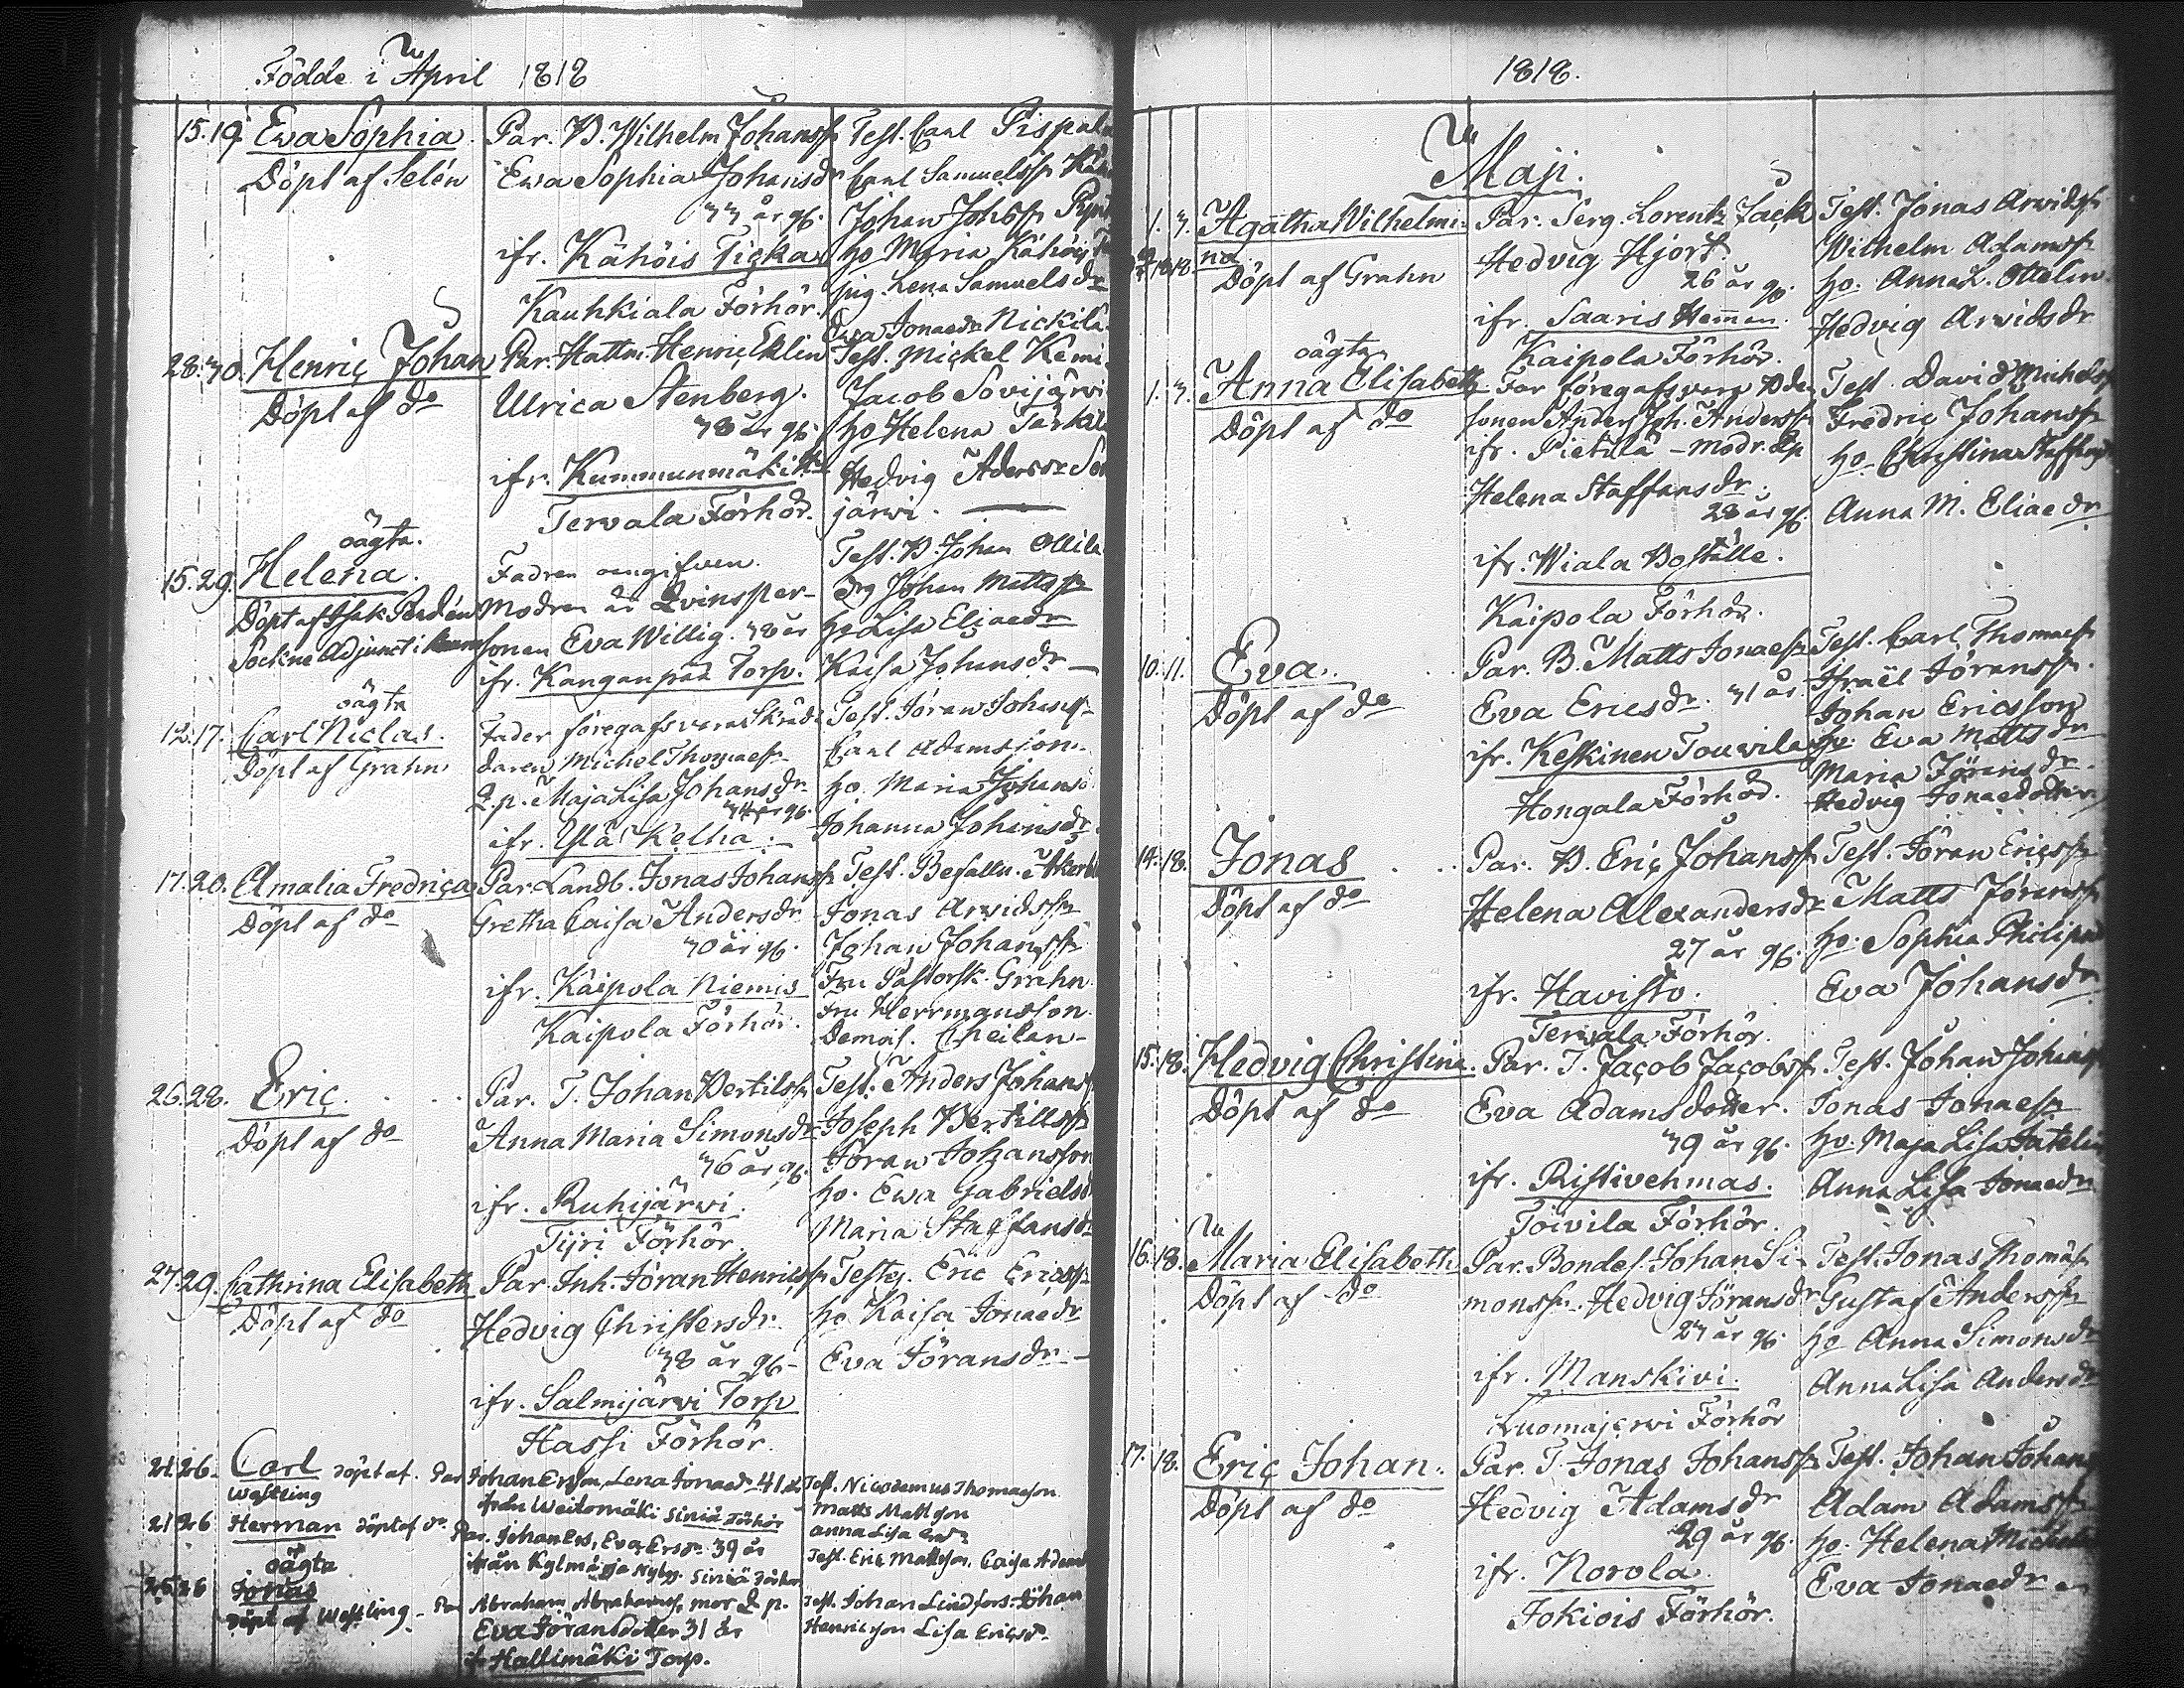 Födde i April 1818
15.19. Eva Sophia.
Döpt af Selén
Par. B. Wilhelm Johanss:n
Ewa Sophia Johansdr
33 år gl.
ifr. Kähöis Ticka
Kauhkiala Förhör.
Test. Carl Pispala
Carl Samuelss:n
Johan Johss:n
ho Maria Kähöis
pig. Lena Samuelsdr
Ewa Jonaedr Nickilä
28.30. Henric Johan
Döpt af do
Par. Hattm. Henric Eklin
Ulrica Stenberg.
38 år gl.
ifr. Kummunmäki
Tervala Förhör.
Test. Mickel Kemi
Jacob Sovijärvi
ho Helena Särkilä
Hedvig Adersdr
järwi.
oägta.
15.29. Helena.
Döpt af Isak
Sockne Adjunct i
Fadren oangifven.
Modren är Qvinsper-
sonen Eva Willig. 38 år
ifr. Kanganpää Torp.
Test. B. Johan Ollila
Dg Johan Mattss:n
ho Lisa Eliaedr
Kaisa Johansdr
oägta
12.17. Carl Niclas.
Döpt af Grahn
Fader föregafs vara Skräd-
daren Michel Thomaess:n
Q.p. Maja Lisa Johansdr
34 år gl.
ifr. Ylä Kelha.
Test. Jöran Johanss:n
Carl Adamsson
ho. Maria Johansd
Johanna Johansdr
17.20. Amalia Fredrica
Döpt af do
Par. Landb. Jonas Johanss:n
Gretha Caisa Andersdr
30 år gl.
ifr. Kaipola Niemis
Kaipola Förhör.
Test. Befalln.
Jonas Arvidss:n
Johan Johanss:n
Fru Pastorsk. Grahn
Fru Herrmansson
Demois. Cheilan
26.28. Eric.
Döpt af do
Par. T. Johan Bertilss:n
Anna Maria Simonsdr
36 år gl.
ifr. Ruhijärwi.
Tijri Förhör
Test. Anders Johanss
Joseph Bertillss:n
Jöran Johansson
ho. Ewa Gabrielsd
Maria Staffansdr
27.29. Cathrina Elisabeth
Döpt af do
Par. Inh. Jöran Henricss:n
Hedvig Christersdr.
38 år gl.
ifr. Salmijärvi Torp
Hassi Förhör.
Testes. Eric Ericss:n
ho Kaisa Jonaedr
Eva Jöransdr
24.26. Carl döpt af
Westling
Par Johan Ersson, Lena Jonaedr 41 år
från Siniä Förhör
Test. Nicodemus Thomaeson
Matts Mattson
Anna Lisa
21.26 Herman döpt af do
Par. Johan Ers, Eva Ersdr 39 år
från Kylmäoja Nybyg. Siniä Förhör
Test. Eric Mattsson, Caisa
oägta
26.26 Jonas
döpt af Westling
Far Abraham Abrahamss, mor Q p.
Eva Jöransdotter 31 år
fr Hallimäki Torp.
Test. Johan Lindfors. Johan
Henricsson Lisa Ericsdr
1818.
Maji.
1. 3. Agatha Wilhelmi-
na
Döpt af Grahn
Par. Serg. Lorentz Jack
Hedvig Hjort.
26 år gl.
ifr. Saaris Hemman.
Kaipola Förhör.
Test. Jonas Arvidss:n
Wilhelm Adamss:n
ho. Anna L. Ottelin
Hedvig Arvidsdr
oägta
1. 3. Anna Elisabeth
Döpt af do
Far föregafs vara Bde
sonen Anders Joh. Anderss:n
ifr. Pietilä - modr. Qp
Helena Staffansdr.
28 år gl.
ifr. Wiala Boställe.
Kaipola Förhör.
Test. David Michelss
Fredric Johanss:n
ho Christina Staffansdr
Anna M. Eliaedr
10. 11. Eva.
Döpt af do
Par. B. Matts Jonaess:n
Eva Ericsdr. 31 år
ifr. Keskinen Touvila
Hongala Förhör.
Test. Carl Thomaess:n
Israël Jöranss:n.
Johan Ericsson
ho. Eva Mattsdr
Maria Jöransdr
Hedvig Jonaedotter
14. 18. Jonas
Döpt af do
Par. B. Eric Johanss:n
Helena Alexandersdr
27 år gl.
ifr. Havisto.
Tervala Förhör.
Test. Jöran Ericss:n
Matts Jöranss:n
ho. Sophia Philipsd
Eva Johansdr
15. 18. Hedvig Christina
Döpt af do
Par. T. Jacob Jacobss:n
Eva Adamsdotter.
39 år gl.
ifr. Ristivehmas.
Toivila Förhör.
Test. Johan Johanss
Jonas Jonaess:n
ho. Maja Lisa
Anna Lisa Jonaedr
16. 18. Maria Elisabeth
Döpt af do
Par. Bondes. Johan Si-
monss:n Hedvig Jöransdr
23 år gl.
ifr. Manskivi.
Luomajerwi Förhör
Test. Jonas Thomäss
Gustaf Anderss:n
ho Anna Simonsdr
Anna Lisa Andersdr
17. 18. Eric Johan.
Döpt af do
Par. T. Jonas Johanss:n
Hedvig Adamsdr
29 år gl.
ifr. Norola.
Jokiois Förhör.
Test. Johan Johans
Adam Adamss:n
ho. Helena
Eva Jonaedr